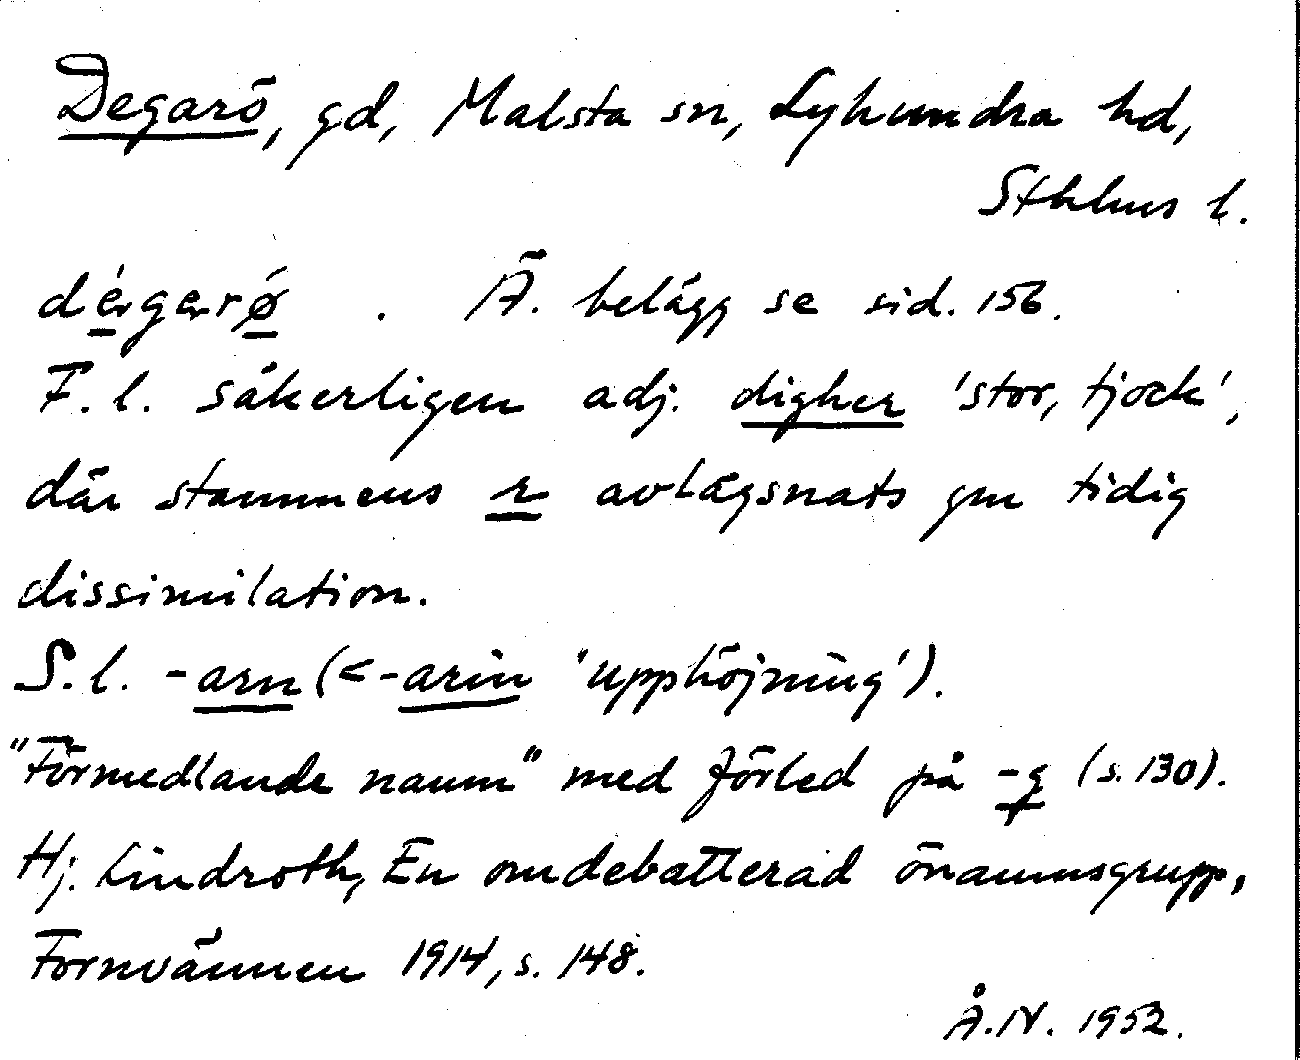 Degarö, gd, Malsta sn, Lyhundra hd,
Sthlms l.
Ä. belägg se sid. 156.
F. l. säkerligen adj. digher 'stor, tjock',
där stammens r avlägsnats gm tidig
dissimilation.
S. l. -arn (<-arin 'upphöjning').
"Förmedlande namn" med förled på -g (s. 130).
Hj. Lindroth, En omdebatterad önamnsgrupp,
Fornvännen 1914, s. 148.
Å. N. 1952.